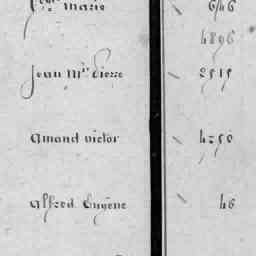 Marie 6/46
4896
Jean Mie Pierre 2515
Amand victor 4250
Alfred Eugène 46